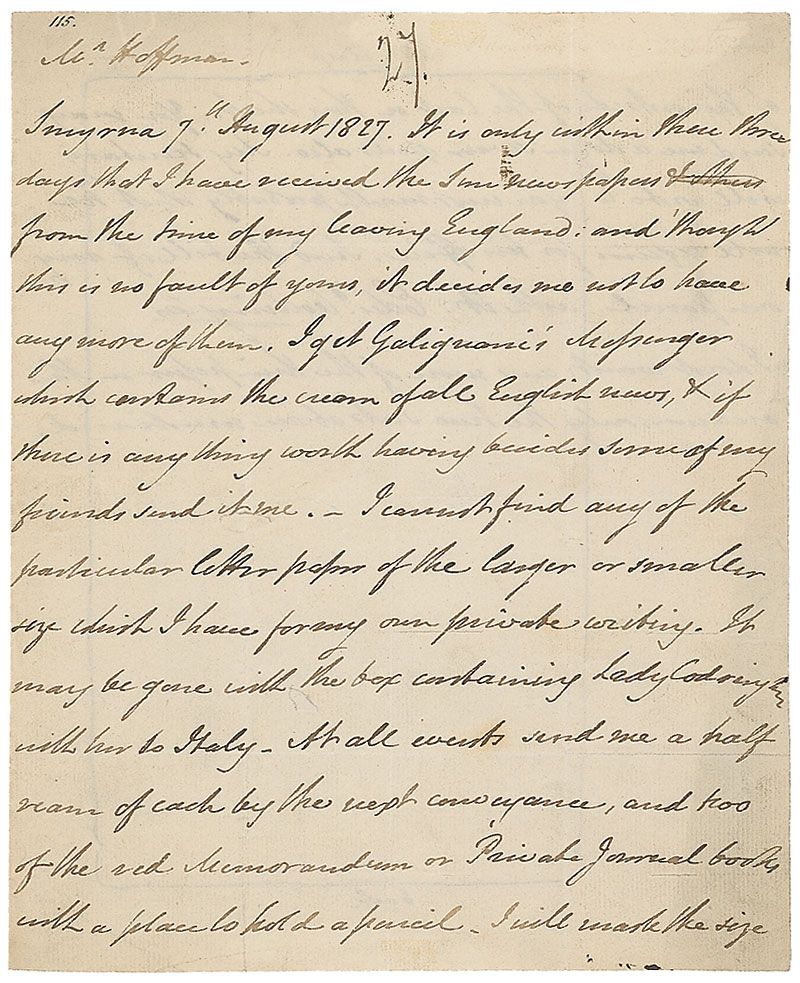 115.
27.
Mr Hoffman.
Smyrna 7.th August 1827. It is only within these three
days that I have received the Sun newspapers & others
from the time of my leaving England: and though
this is no fault of yours, it decides me not to have
any more of them. I get Galignani's Messenger
which contains the cream of all English news, & if
there is any thing worth having besides some of my
friends send it me. – I cannot find any of the
particular letter paper of the larger or smaller
size which I have for my own private writing. It
may be gone with the box containing Lady Codrington
with her to Italy – At all events send me a half
ream of each by the next conveyance, and two
of the red Memorandum or Private Journal books
with a place to hold a pencil – I will mark the size